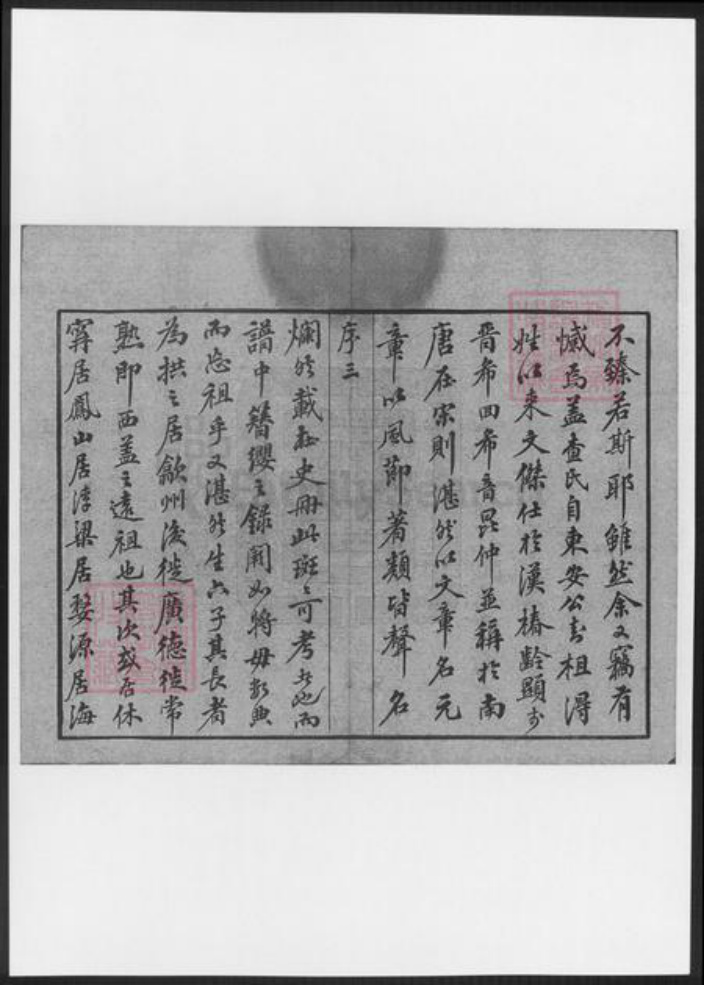 不臻若斯耶雖然余又竊有
憾焉蓋查氏自東安公去祖得
姓以來文傑仕於漢椿齡顯于
晋希四希音昆仲並稱於南
唐在宋則湛然以文章名元
章以風節著類皆聲名
序三
爛然載在史冊此班〻可考
譜中簪纓之錄闕如將毋數典
而忘祖乎又湛然生六子其長者
為拱之居歙州後徙廣德徙常
熟即西蓋之遠祖也其次或居休
寧居鳳山居浮梁居婺源居海